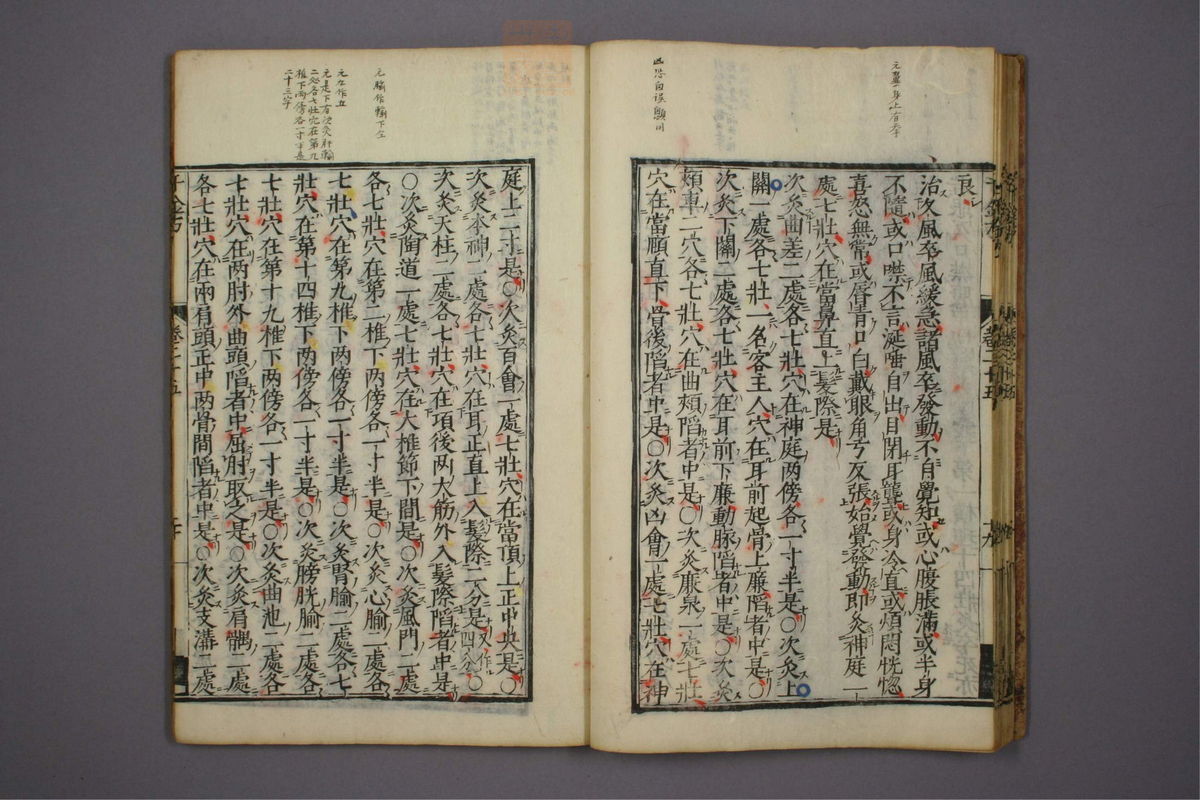 元翼身上有半
凶恐囟误願同
良
治久風卒風緩急諸風卒發動不自覺知或心腹脹滿或半身
不隨或口噤不言涎唾自出目閉耳聾或身冷直或煩悶恍惚
喜怒無常或唇青口白戴眼角弓反張始覺發動即灸神庭一
處七壯穴在當鼻直上髮際是
次灸曲差二處各七壯穴在神庭兩傍各一寸半是〇次灸上
關一處各七壯一名客主人穴在耳前起骨上廉陷者中是〇
次灸下關二處各七壯穴在耳前下廉動脉陷者中是〇次灸
頰車二穴各七壯穴在曲頰陷者中是〇次灸廉泉一處七壯
穴在當頤直下骨後陷者中是〇次灸凶會一處七壯穴在神
千金方 卷二十五 十九
元腧作輸下仝
元左作五
元是下有次灸肝輸
二處各七壯穴在第九
椎下两傍各一寸半是
二十三字
庭上二寸是〇次灸百會一處七壯穴在當頂上正中央是〇
次灸本神二處各七壯穴在耳正直上入髮際二分是又作四分〇
次灸天柱二處各七壯穴在項後两大筋外入髮際陷者中是
〇次灸陶道一處七壯穴在大椎節下間是〇次灸風門二處
各七壯穴在第二椎下两傍各一寸半是〇次灸心腧二處各
七壯穴在第九椎下两傍各一寸半是〇次灸腎腧二處各七
壯穴在第十四椎下两傍各一寸半是〇次灸膀胱腧二處各
七壯穴在第十九椎下两傍各一寸半是〇次灸曲池二處各
七壯穴在两肘外曲頭陷者中屈肘取之是〇次灸肩髃二處
各七壯穴在兩肩頭正中两骨間陷者中是〇次灸支溝二處
千金方 卷二十五 二十